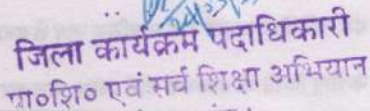 जिला कार्यक्रम पदाधिकारी
प्रा०शि० एवं सर्व शिक्षा अभियान